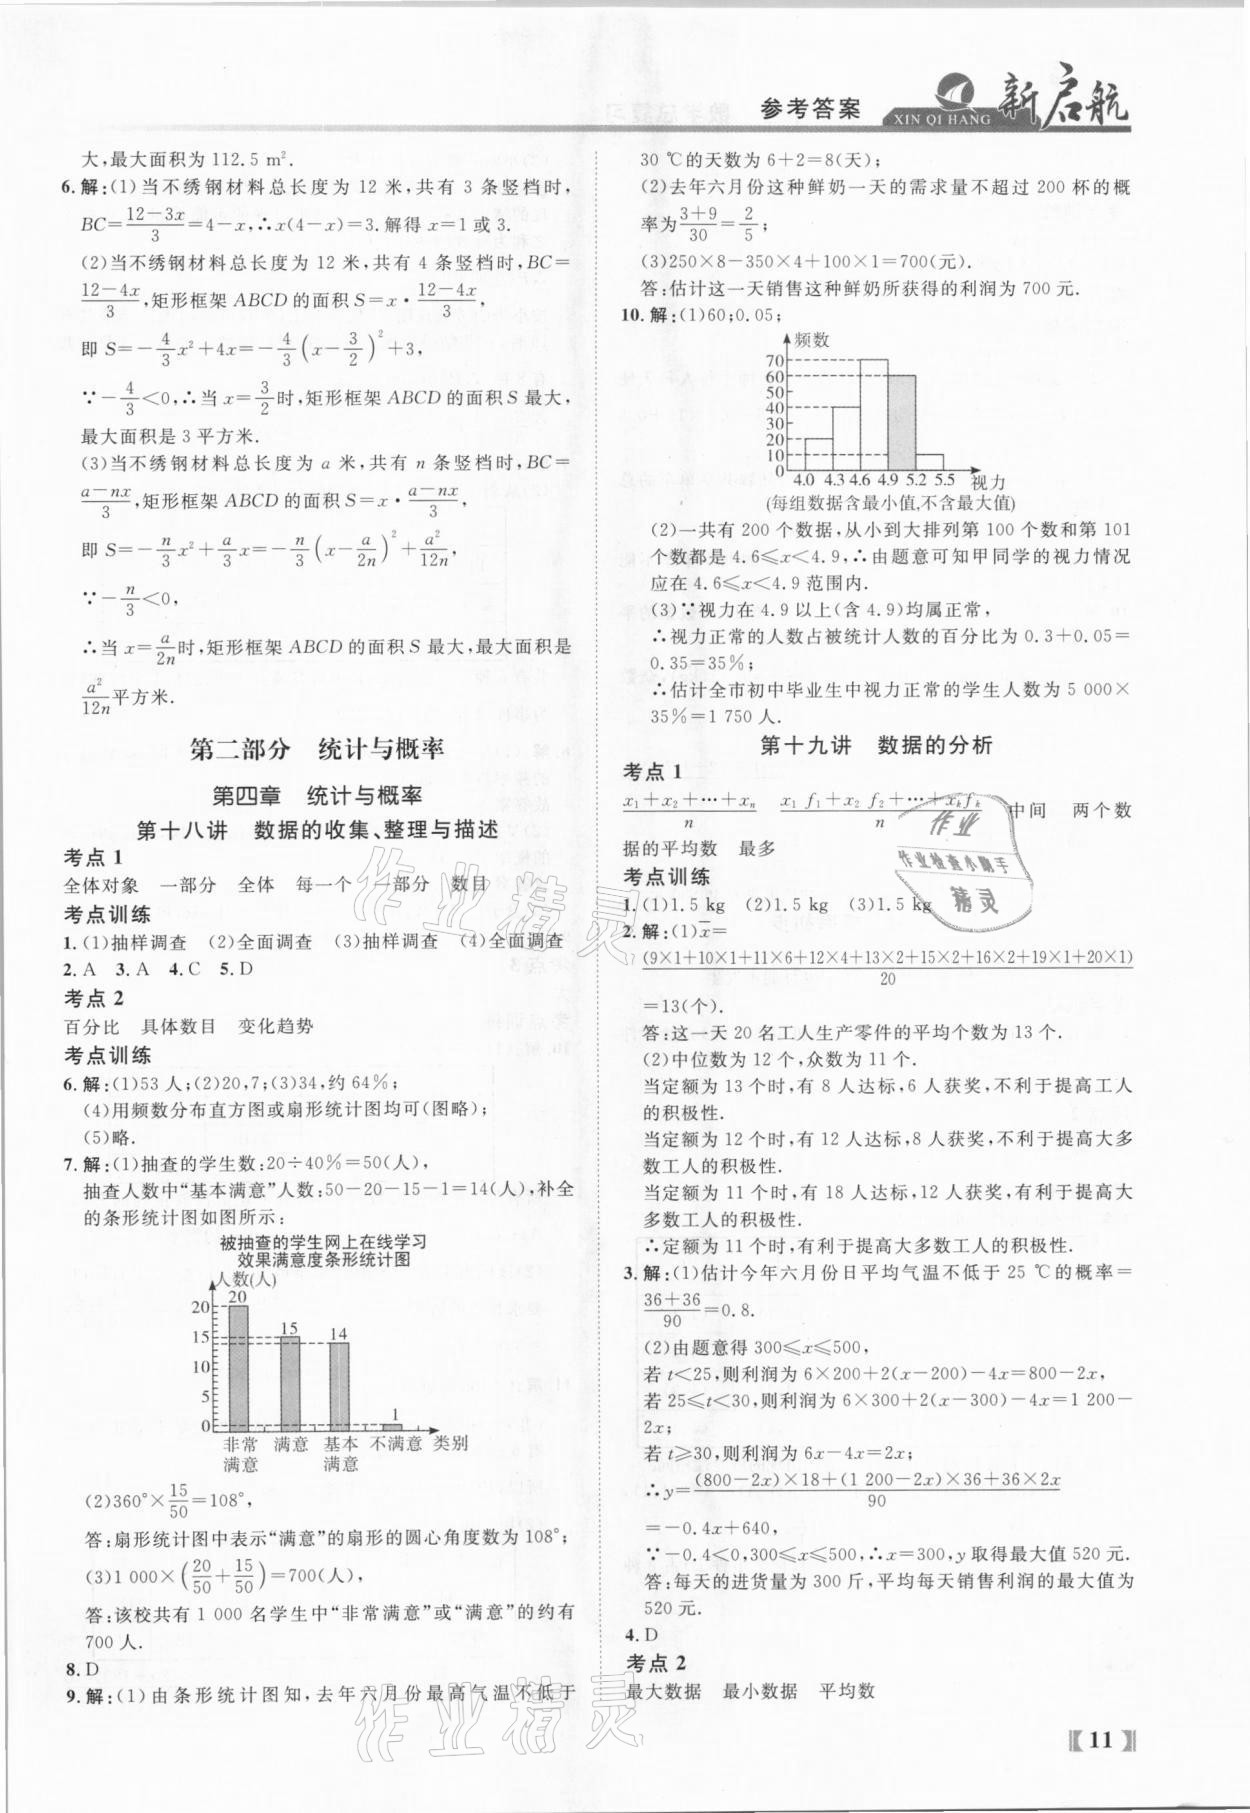 参考答案
XIN QI HANG
新启航
大,最大面积为 112.5 m².
6. 解:(1)当不锈钢材料总长度为 12 米,共有 3 条竖档时,
BC=(12-3x)/3=4-x,∴x(4-x)=3.解得 x=1 或 3.
(2)当不绣钢材料总长度为 12 米,共有 4 条竖档时,BC=
(12-4x)/3,矩形框架 ABCD 的面积 S=x·(12-4x)/3,
即 S=-4/3x²+4x=-4/3(x-3/2)²+3,
∵-4/3<0,∴当 x=3/2时,矩形框架 ABCD 的面积 S 最大,
最大面积是 3 平方米.
(3)当不锈钢材料总长度为 a 米,共有 n 条竖档时,BC=
(a-nx)/3,矩形框架 ABCD 的面积 S=x·(a-nx)/3,
即 S=-n/3x²+a/3x=-n/3(x-a/2n)²+a²/12n,
∵-n/3<0,
∴当 x=a/2n时,矩形框架 ABCD 的面积 S 最大,最大面积是
a²/12n平方米.
第二部分 统计与概率
第四章 统计与概率
第十八讲 数据的收集、整理与描述
考点 1
全体对象 一部分 全体 每一个 一部分 数目
考点训练
1. (1)抽样调查 (2)全面调查 (3)抽样调查 (4)全面调查
2. A 3. A 4. C 5. D
考点 2
百分比 具体数目 变化趋势
考点训练
6. 解:(1)53 人;(2)20,7;(3)34,约 64%;
(4)用频数分布直方图或扇形统计图均可(图略);
(5)略.
7. 解:(1)抽查的学生数:20÷40%=50(人),
抽查人数中“基本满意”人数:50-20-15-1=14(人),补全
的条形统计图如图所示:
被抽查的学生网上在线学习
效果满意度条形统计图
人数(人)
20
20
15
15
14
10
5
1
0
非常 满意 基本 不满意 类别
满意 满意
(2)360°×15/50=108°,
答:扇形统计图中表示“满意”的扇形的圆心角度数为 108°;
(3)1 000×(20/50+15/50)=700(人),
答:该校共有 1 000 名学生中“非常满意”或“满意”的约有
700 人.
8. D
9. 解:(1)由条形统计图知,去年六月份最高气温不低于
30 ℃的天数为 6+2=8(天);
(2)去年六月份这种鲜奶一天的需求量不超过 200 杯的概
率为(3+9)/30=2/5;
(3)250×8-350×4+100×1=700(元).
答:估计这一天销售这种鲜奶所获得的利润为 700 元.
10. 解:(1)60;0.05;
频数
70
60
50
40
30
20
10
0
4.0 4.3 4.6 4.9 5.2 5.5 视力
(每组数据含最小值,不含最大值)
(2)一共有 200 个数据,从小到大排列第 100 个数和第 101
个数都是 4.6≤x<4.9,∴由题意可知甲同学的视力情况
应在 4.6≤x<4.9 范围内.
(3)∵视力在 4.9 以上(含 4.9)均属正常,
∴视力正常的人数占被统计人数的百分比为 0.3+0.05=
0.35=35%;
∴估计全市初中毕业生中视力正常的学生人数为 5 000×
35%=1 750 人.
第十九讲 数据的分析
考点 1
(x₁+x₂+…+xₙ)/n (x₁f₁+x₂f₂+…+xₖfₖ)/n 中间 两个数
据的平均数 最多
考点训练
1. (1)1.5 kg (2)1.5 kg (3)1.5 kg
2. 解:(1)x̄=
(9×1+10×1+11×6+12×4+13×2+15×2+16×2+19×1+20×1)/20
=13(个).
答:这一天 20 名工人生产零件的平均个数为 13 个.
(2)中位数为 12 个,众数为 11 个.
当定额为 13 个时,有 8 人达标,6 人获奖,不利于提高工人
的积极性.
当定额为 12 个时,有 12 人达标,8 人获奖,不利于提高大多
数工人的积极性.
当定额为 11 个时,有 18 人达标,12 人获奖,有利于提高大
多数工人的积极性.
∴定额为 11 个时,有利于提高大多数工人的积极性.
3. 解:(1)估计今年六月份日平均气温不低于 25 ℃的概率=
(36+36)/90=0.8.
(2)由题意得 300≤x≤500,
若 t<25,则利润为 6×200+2(x-200)-4x=800-2x,
若 25≤t<30,则利润为 6×300+2(x-300)-4x=1 200-
2x;
若 t≥30,则利润为 6x-4x=2x;
∴y=((800-2x)×18+(1 200-2x)×36+36×2x)/90
=-0.4x+640,
∵-0.4<0,300≤x≤500,∴x=300,y 取得最大值 520 元.
答:每天的进货量为 300 斤,平均每天销售利润的最大值为
520 元.
4. D
考点 2
最大数据 最小数据 平均数
作业
作业检查小助手
精灵
作业精灵
作业精灵
11